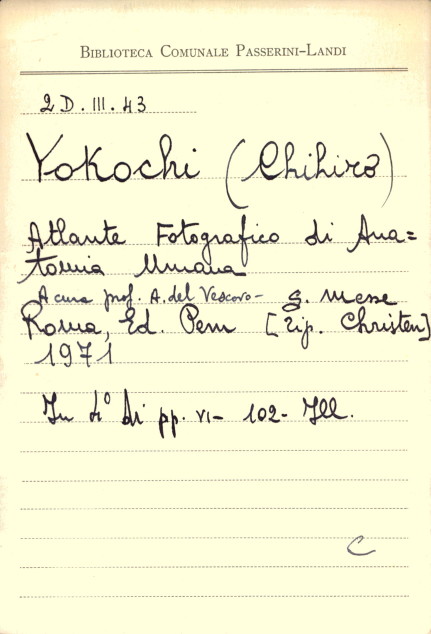 BIBLIOTECA COMUNALE PASSERINI-LANDI
2 D. III. 43
Yokochi (Chihiro)
Atlante Fotografico di Ana=
tomia Umana
A cura prof. A. del Vescovo-
Roma, Ed. Pem [Tip. Christen]
1971
In 4° di pp. VI- 102- Ill.
C